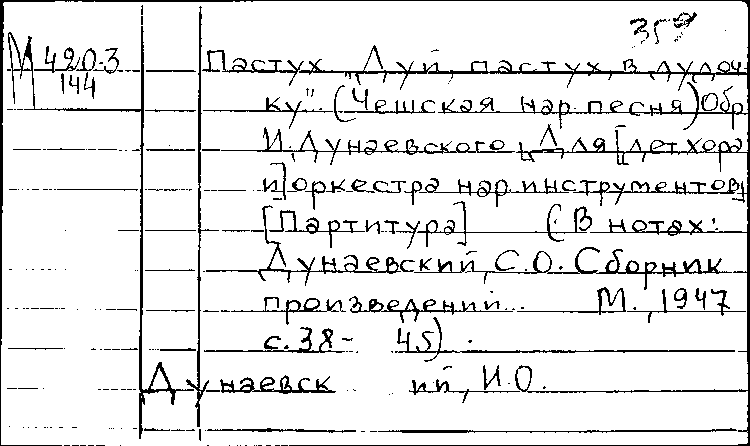 359
М 420-3
144
Пастух „Дуй, пастух, в дудоч
ку". (Чешская нар песня) Обр
И. Дунаевского. Для [дет хора
и] оркестра нар инструментов
[Партитура] (В нотах:
Дунаевский, С.О. Сборник
произведений... М., 1947
с. 38- 45).
Дунаевск ий, И.О.